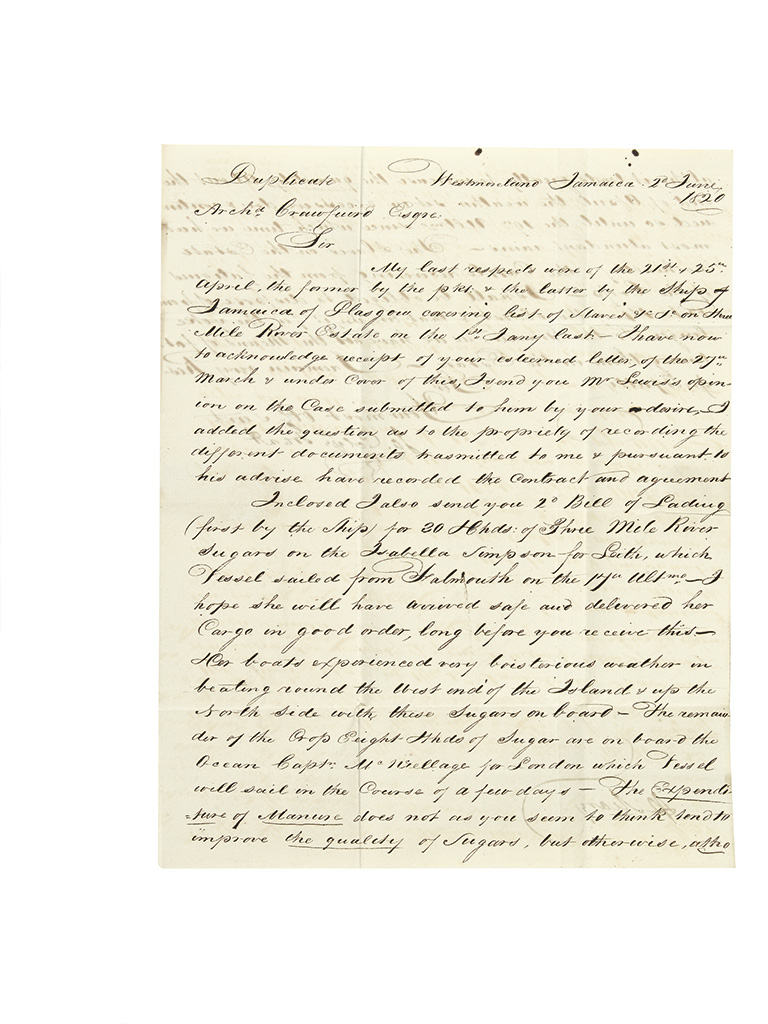 Duplicate Westmoreland Jamaica 2d June
1820
Archd. Crawfuird Esqre
Sir
My last respects were of the 21st & 25th.
April, the former by the pkt. & the latter by the Ship
Jamaica of Glasgow covering list of Slaves &c &c on Three
Mile River Estate on the 1st. Jany last – I have now
to acknowledge receipt of your esteemed letter of the 27th
March & under Cover of this, I send you Mr Lewis's opin-
ion on the Case submitted to him by your desire, I
added the question as to the propriety of recording the
different documents trasmitted to me & pursuant to
his advise have recorded the Contract and agreement
Inclosed I also send you 2d Bill of Lading
(first by the Ship) for 30 Hhds: of Three Mile River
Sugars on the Isabella Simpson for Leith, which
Vessel sailed from Falmouth on the 17th Ultmo – I
hope she will have arrived safe and delivered her
Cargo in good order, long before you receive this –
Her boats experienced very boisterious weather in
beating round the West end of the Island & up the
North side with these Sugars on board – The remain-
der of the Crop Eeight Hhds of Sugar are on board the
Ocean Captn. for London which Vessel
will sail in the Course of a few days – The Expendi-
=ture of Manure does not as you seem to think tend to
improve the quality of Sugars, but otherwise, altho